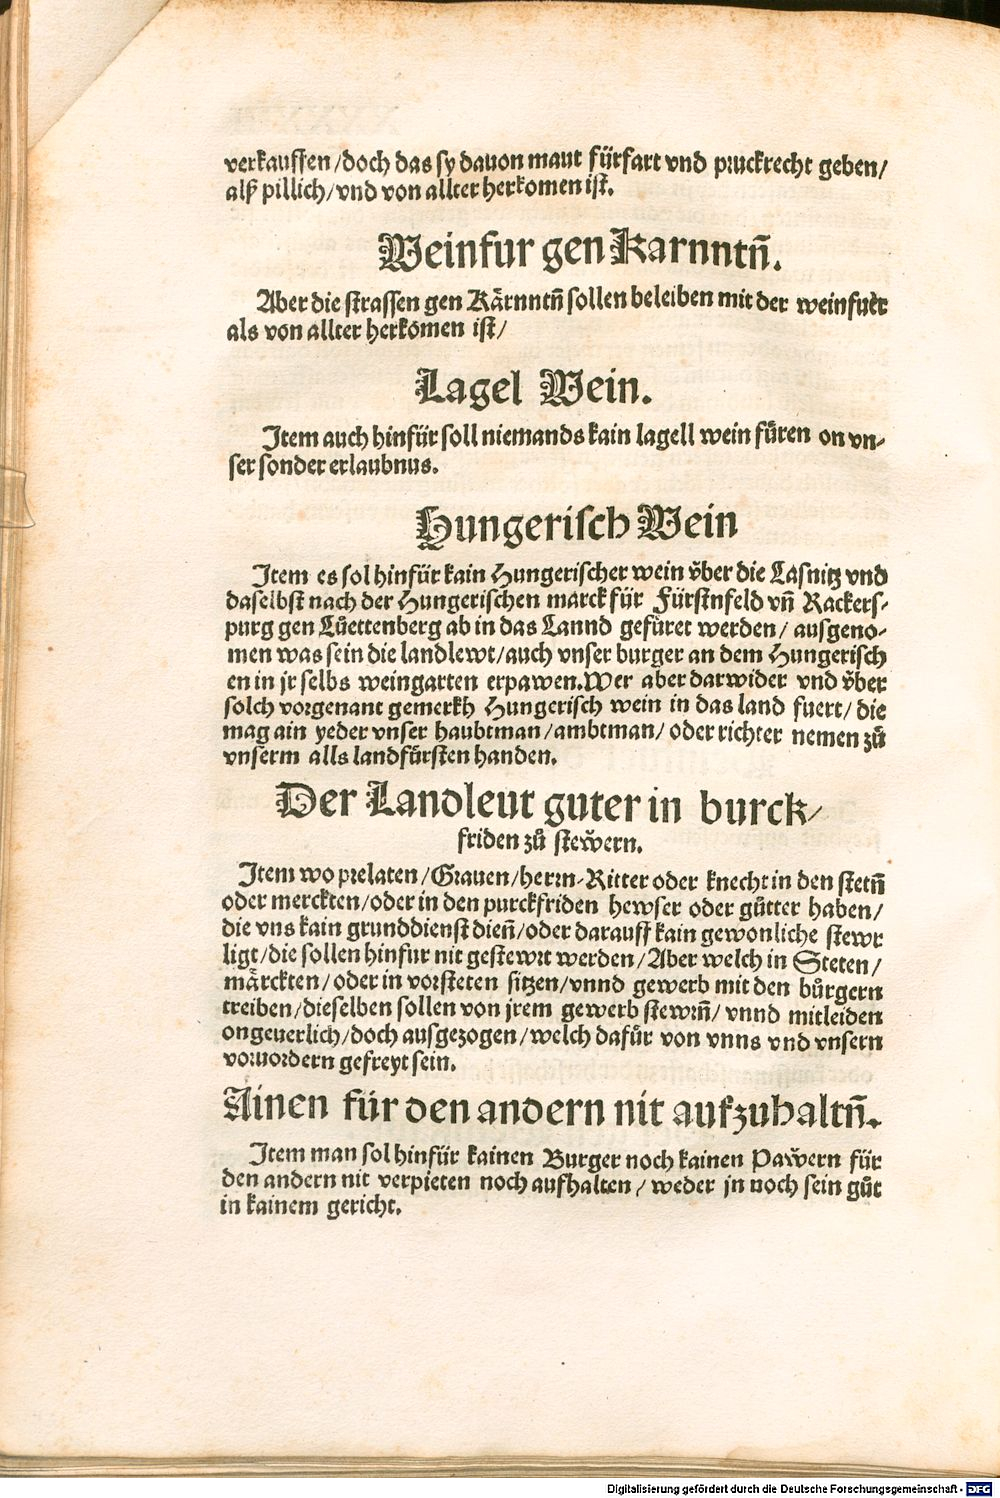 verkauffen/doch das sy dauon maut fürfart vnd pruckrecht geben/
alß pillich/vnd von allter herkomen ist.
Weinfur gen Karnntn̄.
Aber die strassen gen Kärnntn̄ sollen beleiben mit der weinfuͤer
als von allter herkomen ist/
Lagel Wein.
Item auch hinfür soll niemands kain lagell wein fuͤren on vn-
ser sonder erlaubnus.
Hungerisch Wein
Item es sol hinfür kain Hungerischer wein vͤber die Lasnitz vnd
daselbst nach der Hungerischen marck für Fürstnfeld vn̄ Rackers-
purg gen Luͤettenberg ab in das Lannd gefüret werden/ ausgeno-
men was sein die landlewt/auch vnser burger an dem Hungerisch
en in jr selbs weingarten erpawen.Wer aber darwider vnd vͤber
solch vorgenant gemerkh Hungerisch wein in das land fuert/ die
mag ain yeder vnser haubtman/ambtman/ oder richter nemen zuͦ
vnserm alls landfuͤrsten handen.
Der Landleut guter in burck/
friden zuͦ steẅern.
Item wo prelaten/Grauen/herrn-Ritter oder knecht in den stetn̄
oder merckten/oder in den purckfriden hewser oder guͤtter haben/
die vns kain grunddienst dien̄/oder darauff kain gewonliche stewr
ligt/die sollen hinfur nit gestewrt werden/Aber welch in Steten/
märckten/ oder in vorsteten sitzen/vnnd gewerb mit den buͤrgern
treiben/dieselben sollen von jrem gewerb stewrn̄/ vnnd mitleiden
ongeuerlich/doch ausgezogen/welch dafuͤr von vnns vnd vnsern
voruordern gefreyt sein.
Ainen für den andern nit aufzuhaltn̄.
Item man sol hinfür kainen Burger noch kainen Paẅern für
den andern nit verpieten noch aufhalten/ weder jn noch sein guͦt
in kainem gericht.
Digitalisierung gefördert durch die Deutsche Forschungsgemeinschaft - DFG